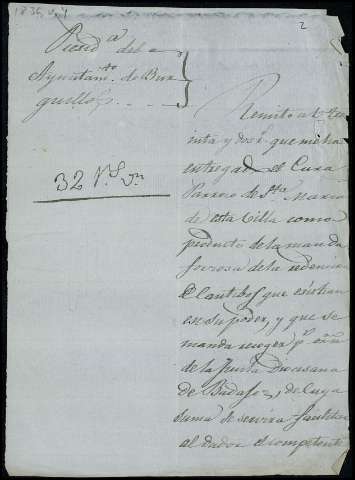 1836
2
Presid.ª del
Ayuntam.to de Bur
guillos
32 r.s v.n
Remito a V.
inta y dos r.s que me ha
entregado el Cura
Parroco de S.ta Maria
de esta Villa como
producto de la manda
forzosa de la redencion
de Cautibos que existian
en su poder, y que se
manda recoger p.r orn.
de la Junta Diocesana
de Badajoz, de cuya
suma se servira facilitar
al dador el competente